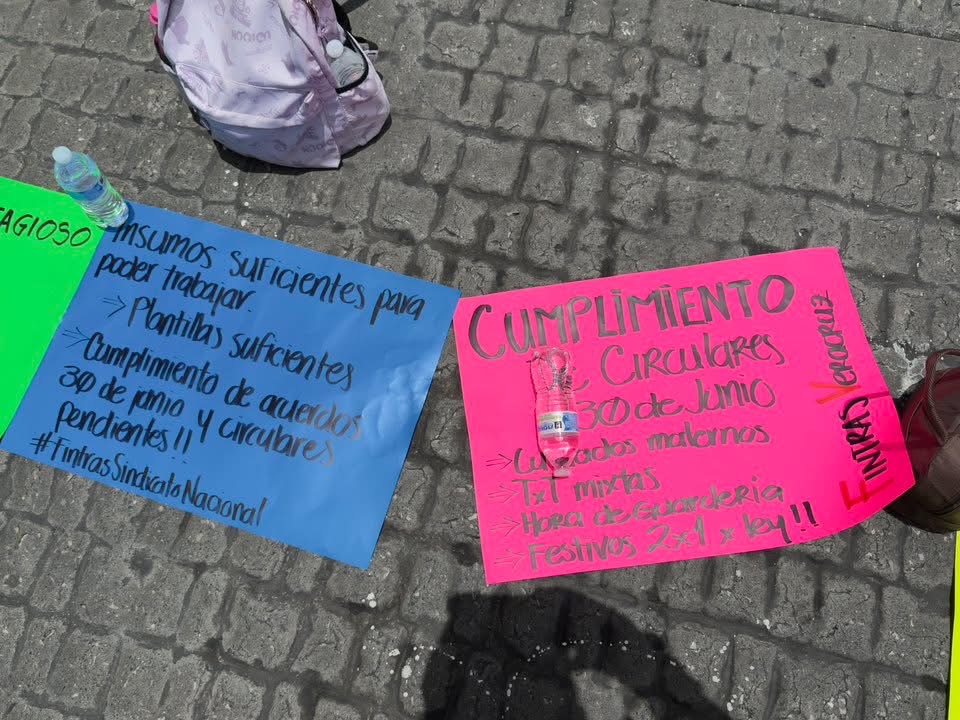 AGIOSO
Insumos suficientes para
poder trabajar.
→ Plantillas suficientes
→ Cumplimiento de acuerdos
30 de junio y circulares
pendientes!!
#FintrasSindicatoNacional
CUMPLIMIENTO
Circulares
30 de Junio
→ Cuidados maternos
→ TxT mixtas
→ Hora de Guardería
→ Festivos 2x1 x ley!!
FINTRAS VERACRUZ